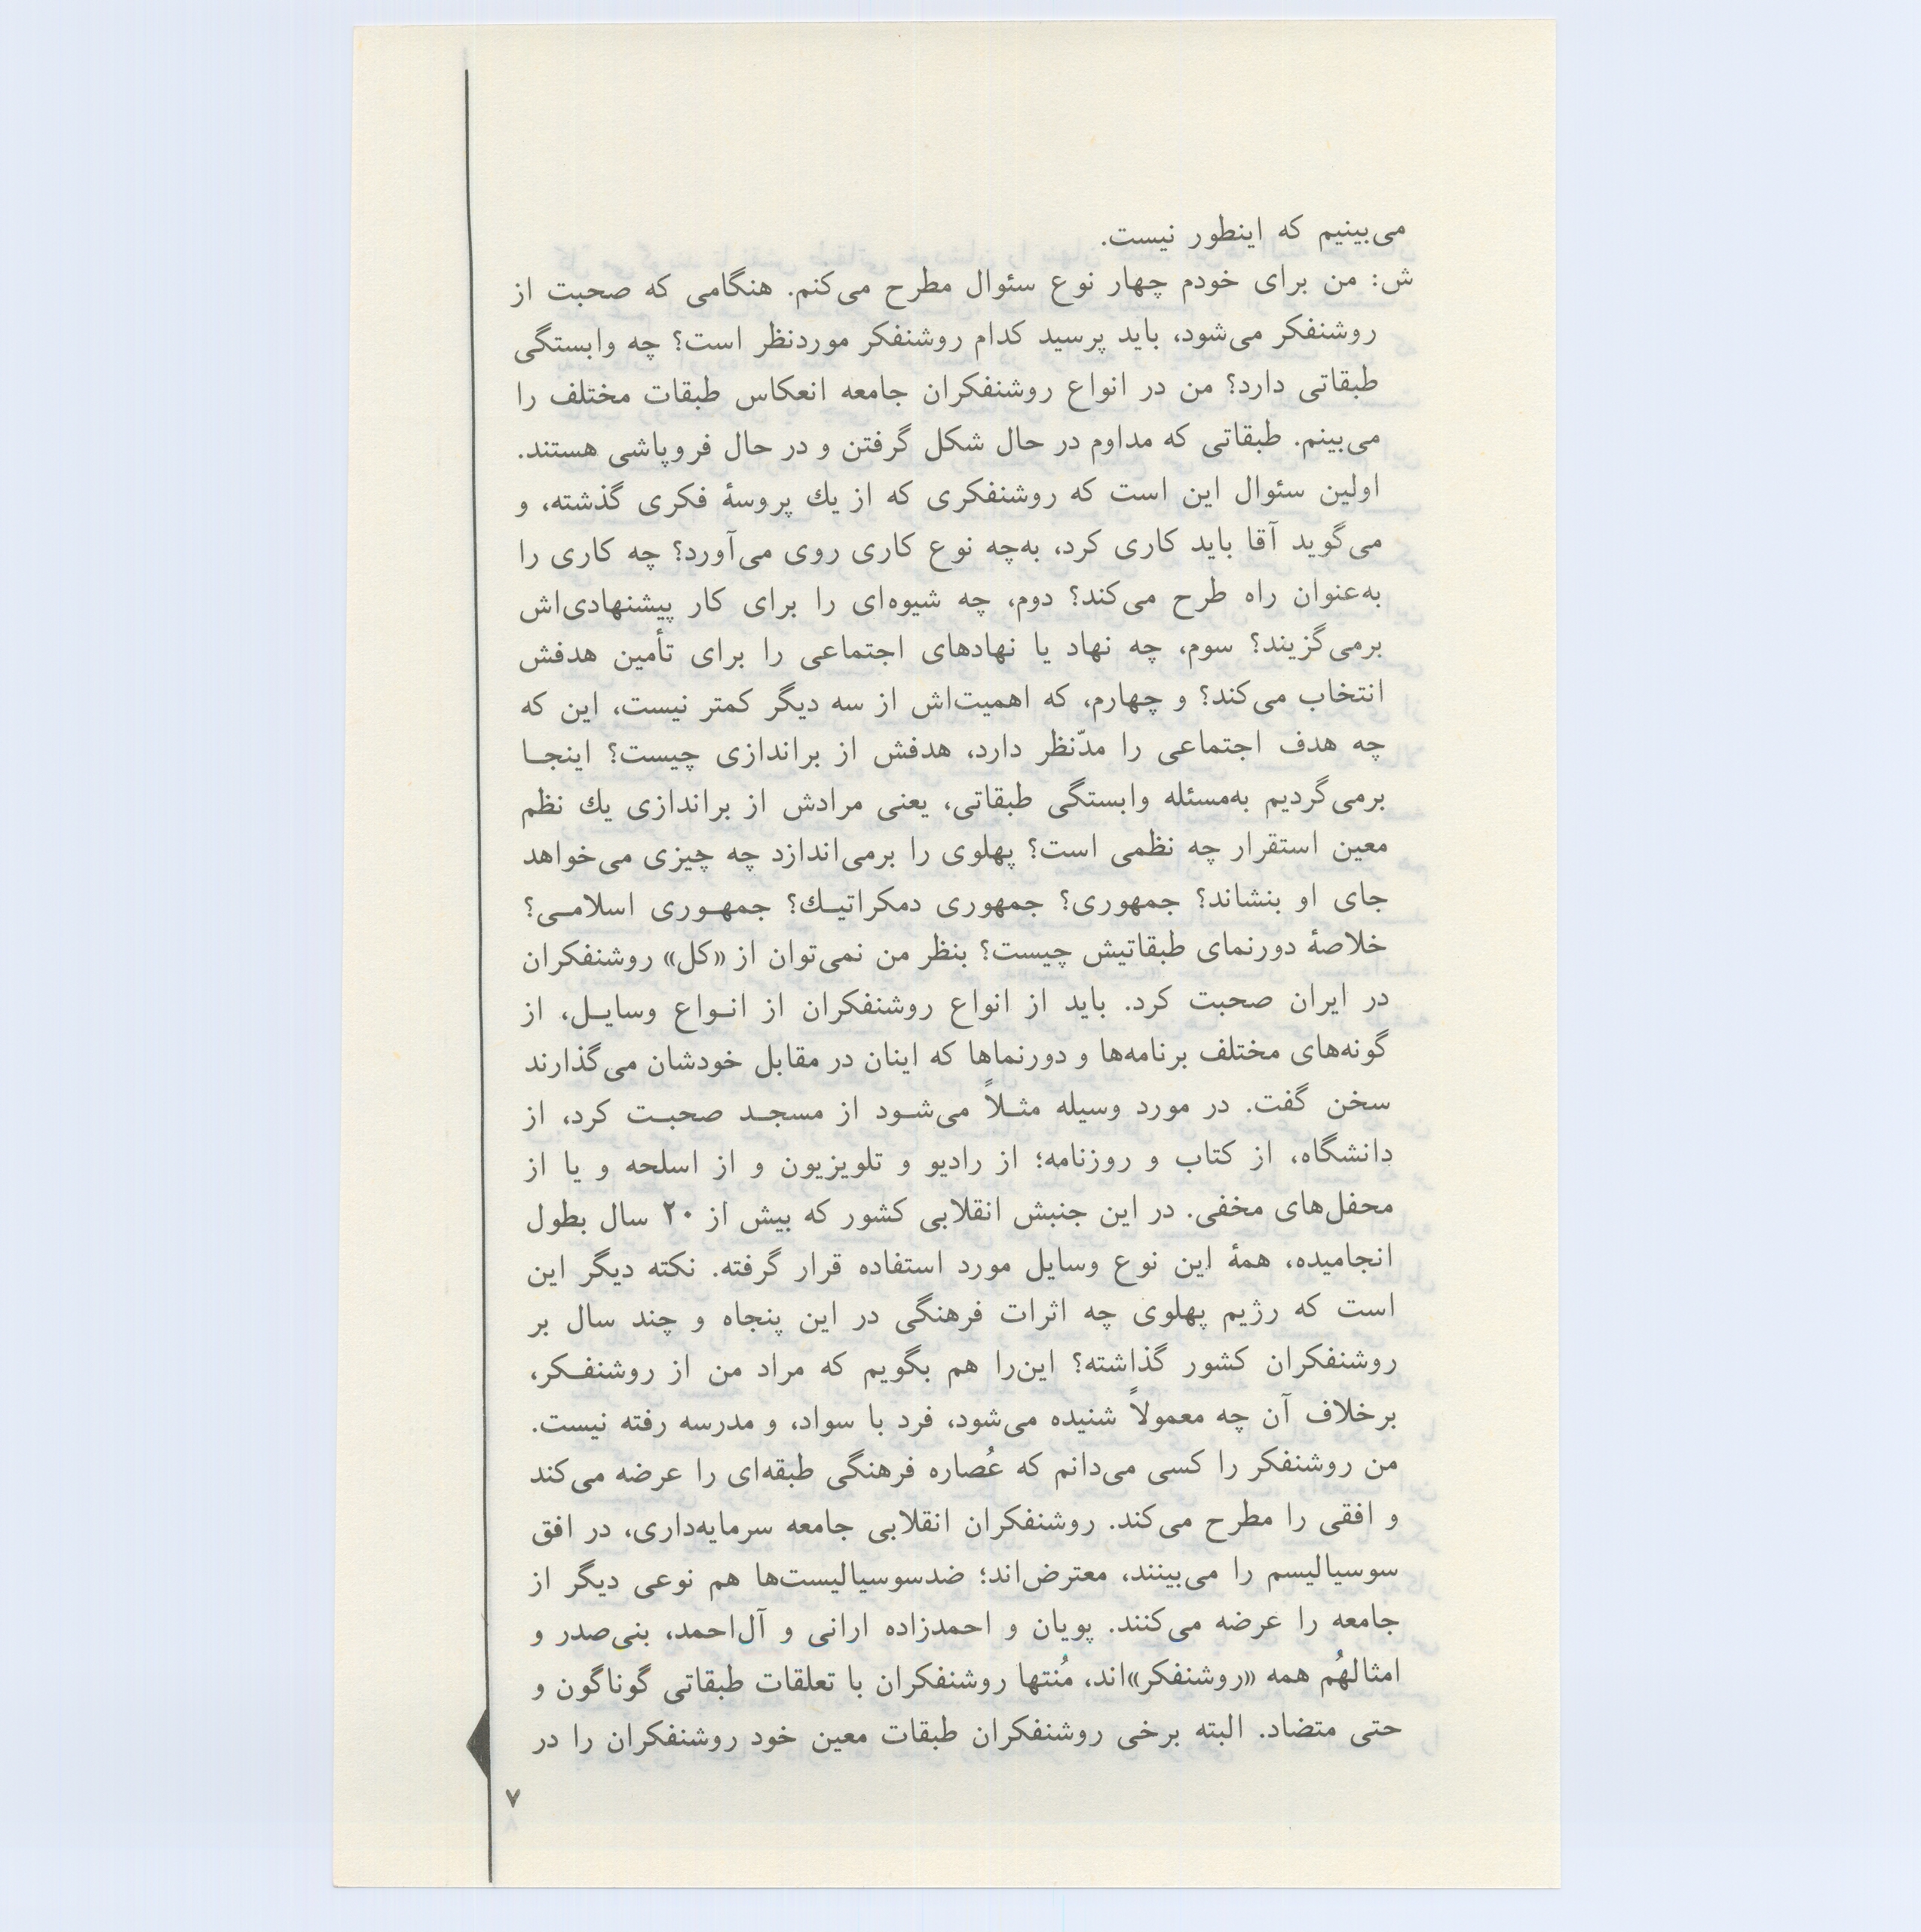 می‌بینیم که اینطور نیست.
ش: من برای خودم چهار نوع سئوال مطرح می‌کنم. هنگامی که صحبت از
روشنفکر می‌شود، باید پرسید کدام روشنفکر موردنظر است؟ چه وابستگی
طبقاتی دارد؟ من در انواع روشنفکران جامعه انعکاس طبقات مختلف را
می‌بینم. طبقاتی که مداوم در حال شکل گرفتن و در حال فروپاشی هستند.
اولین سئوال این است که روشنفکری که از یك پروسهٔ فکری گذشته، و
می‌گوید آقا باید کاری کرد، به‌چه نوع کاری روی می‌آورد؟ چه کاری را
به‌عنوان راه طرح می‌کند؟ دوم، چه شیوه‌ای را برای کار پیشنهادی‌اش
برمی‌گزیند؟ سوم، چه نهاد یا نهادهای اجتماعی را برای تأمین هدفش
انتخاب می‌کند؟ و چهارم، که اهمیت‌اش از سه دیگر کمتر نیست، این که
چه هدف اجتماعی را مدّنظر دارد، هدفش از براندازی چیست؟ اینجـا
برمی‌گردیم به‌مسئله وابستگی طبقاتی، یعنی مرادش از براندازی یك نظم
معین استقرار چه نظمی است؟ پهلوی را برمی‌اندازد چه چیزی می‌خواهد
جای او بنشاند؟ جمهوری؟ جمهوری دمکراتیـك؟ جمهـوری اسلامـی؟
خلاصهٔ دورنمای طبقاتیش چیست؟ بنظر من نمی‌توان از «کل» روشنفکران
در ایران صحبت کرد. باید از انواع روشنفکران از انـواع وسایـل، از
گونه‌های مختلف برنامه‌ها و دورنماها که اینان در مقابل خودشان می‌گذارند
سخن گفت. در مورد وسیله مثـلاً می‌شـود از مسجـد صحبـت کرد، از
دانشگاه، از کتاب و روزنامه؛ از رادیو و تلویزیون و از اسلحه و یا از
محفل‌های مخفی. در این جنبش انقلابی کشور که بیش از ۲۰ سال بطول
انجامیده، همهٔ این نوع وسایل مورد استفاده قرار گرفته. نکته دیگر این
است که رژیم پهلوی چه اثرات فرهنگی در این پنجاه و چند سال بر
روشنفکران کشور گذاشته؟ این‌را هم بگویم که مراد من از روشنفـکر،
برخلاف آن چه معمولاً شنیده می‌شود، فرد با سواد، و مدرسه رفته نیست.
من روشنفکر را کسی می‌دانم که عُصاره فرهنگی طبقه‌ای را عرضه می‌کند
و افقی را مطرح می‌کند. روشنفکران انقلابی جامعه سرمایه‌داری، در افق
سوسیالیسم را می‌بینند، معترض‌اند؛ ضدسوسیالیست‌ها هم نوعی دیگر از
جامعه را عرضه می‌کنند. پویان و احمدزاده ارانی و آل‌احمد، بنی‌صدر و
امثالهُم همه «روشنفکر»اند، مُنتها روشنفکران با تعلقات طبقاتی گوناگون و
حتی متضاد. البته برخی روشنفکران طبقات معین خود روشنفکران را در
۷